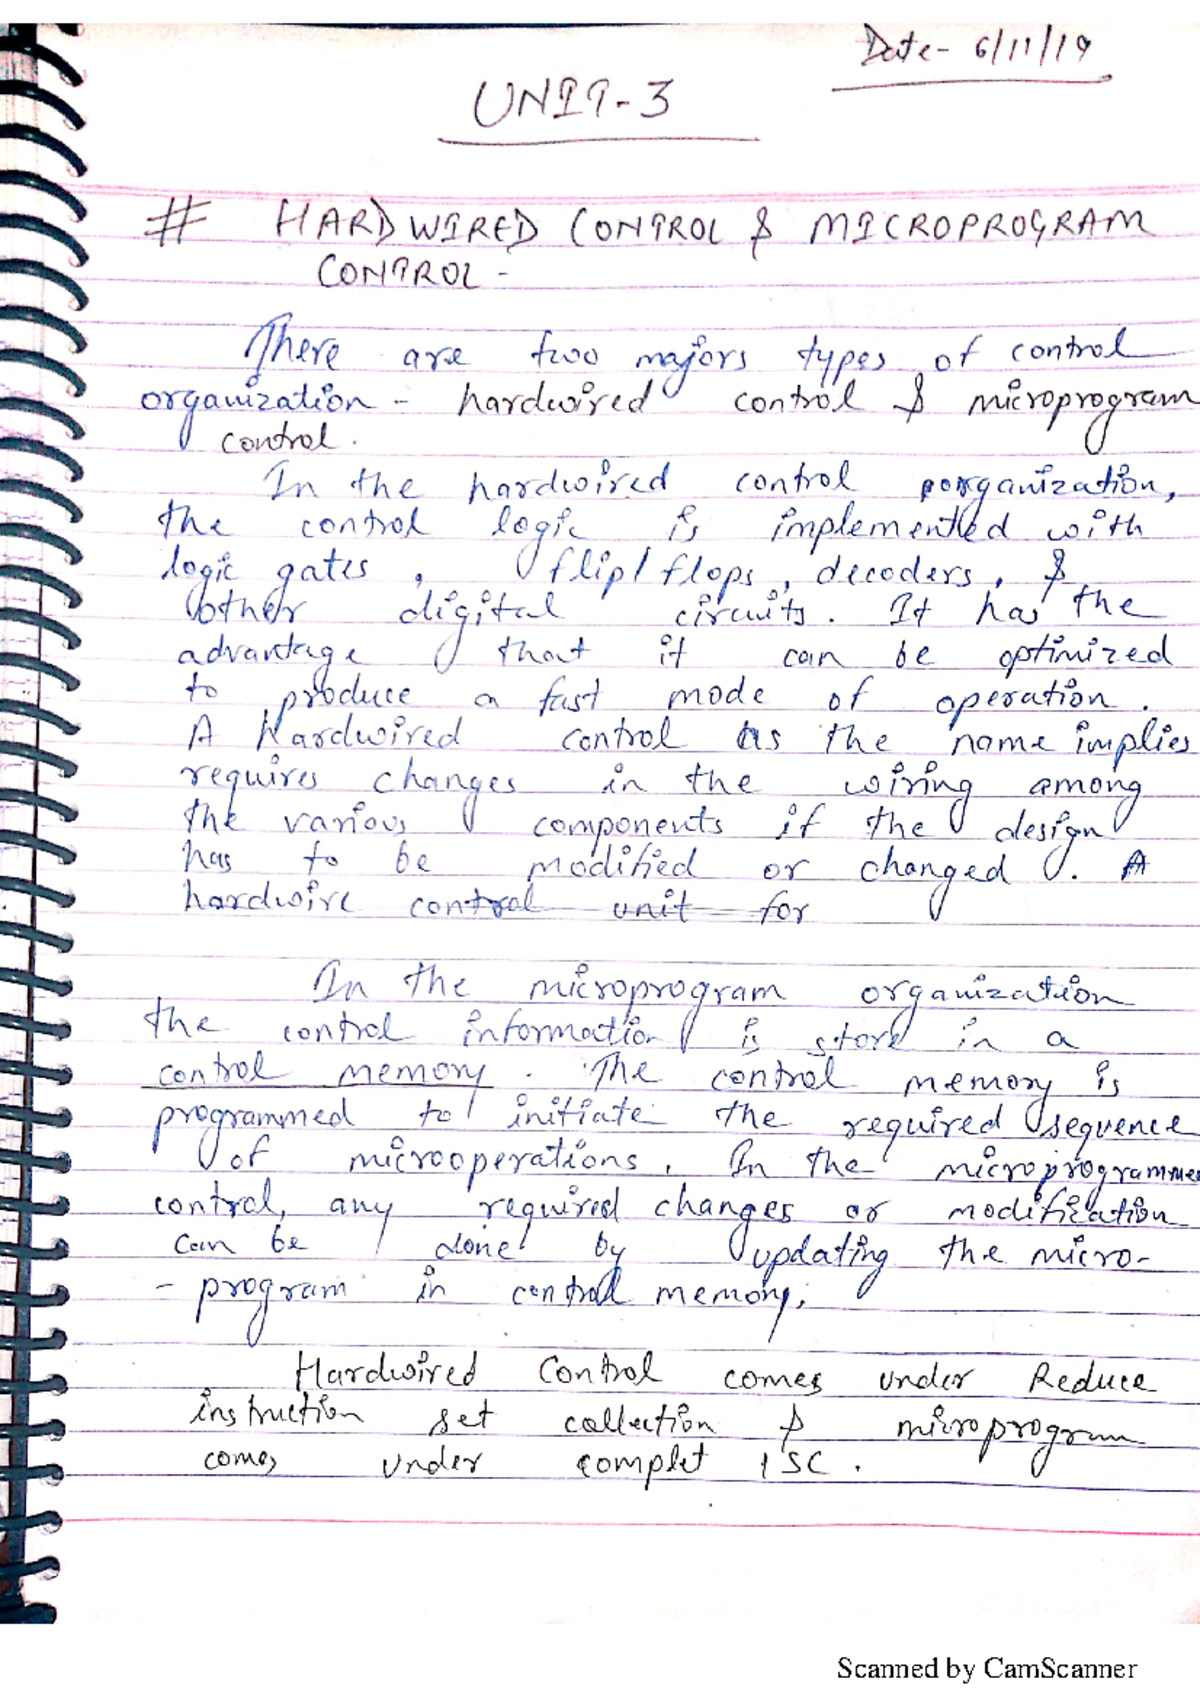 Date- 6/11/19
UNIT-3
# HARDWIRED CONTROL & MICROPROGRAM
CONTROL -
There are two majors types of control
organization - hardwired control & microprogram
control.
In the hardwired control organization,
the control logic is implemented with
logic gates, flip/flops, decoders, &
other digital circuits. It has the
advantage that it can be optimized
to produce a fast mode of operation.
A Hardwired control as the name implies
requires changes in the wiring among
the various components if the design
has to be modified or changed. A
hardwire control unit for
In the microprogram organization
the control information is store in a
control memory. The control memory is
programmed to initiate the required sequence
of microoperations. In the microprogrammed
control, any required changes or modification
can be done by updating the micro-
- program in control memory.
Hardwired Control comes under Reduce
instruction set collection & microprogram
comes under complet ISC.
Scanned by CamScanner